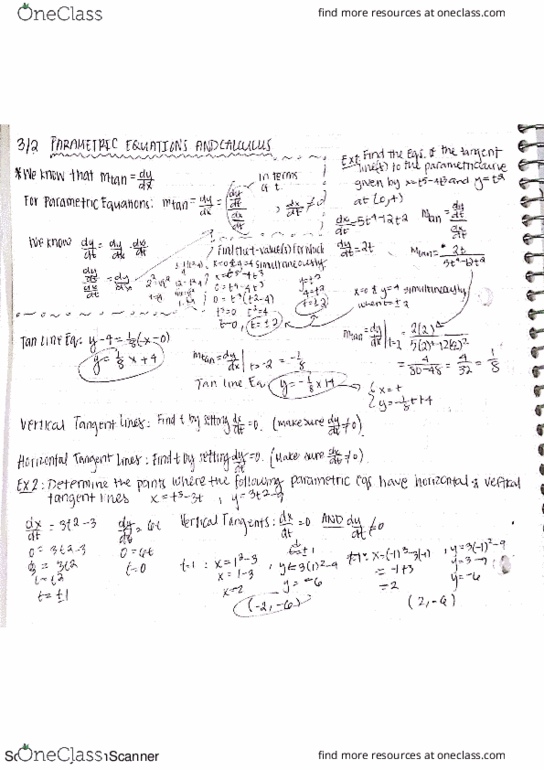 OneClass
find more resources at oneclass.com
3/2 PARAMETRIC EQUATIONS AND CALCULUS
*We know that mtan = dy/dx
in terms of t.
For Parametric Equations: mtan = dy/dx = (dy/dt)/(dx/dt), dx/dt ≠ 0
We know dy/dt = dy/dx · dx/dt
(dy/dt)/(dx/dt) = dy/dx
Find the t-value(s) for which
x=0 & y=4 simultaneously
x=t⁵-4t³
0=t⁵-4t³
0=t³(t²-4)
t³=0 t²=4
t=0, t=±2
y=t²
4=t²
t=±2
Ex1: Find the Eqs. of the tangent
line(s) to the parametric curve
given by x=t⁵-4t³ and y=t²
at (0,4)
dx/dt = 5t⁴-12t²
dy/dt = 2t
mtan = (dy/dt)/(dx/dt)
mtan = 2t/(5t⁴-12t²)
x=0 & y=4 simultaneously
when t=±2
mtan = dy/dx | t=2 = 2(2)/(5(2)⁴-12(2)²)
= 4/(80-48) = 4/32 = 1/8
Tan Line Eq: y-4=1/8(x-0)
y=1/8x+4
mtan = dy/dx | t=-2 = -1/8
Tan line Eq y=-1/8x+4
{x=t
y=-1/8t+4
Vertical Tangent Lines: Find t by setting dx/dt=0. (make sure dy/dt≠0)
Horizontal Tangent Lines: Find t by setting dy/dt=0. (Make sure dx/dt≠0)
Ex 2: Determine the points where the following parametric eqs have horizontal & vertical
tangent lines x=t³-3t, y=3t²-9
dx/dt = 3t²-3
0=3t²-3
3=3t²
1=t²
t=±1
dy/dt = 6t
0=6t
t=0
Vertical Tangents: dx/dt=0 AND dy/dt≠0
t=±1
t=1: x=1³-3
x=1-3
x=-2
, y=3(1)²-9
y=-6
(-2,-6)
t=-1: x=(-1)³-3(-1)
=-1+3
=2
, y=3(-1)²-9
y=3-9
y=-6
(2,-6)
OneClass
Scanner
find more resources at oneclass.com